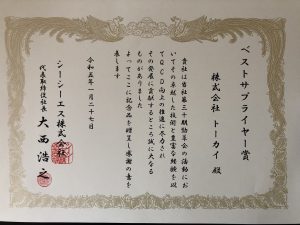 ベストサプライヤー賞
株式会社 トーカイ 殿
貴社は当社第三十期協草会の活動にお
いてその卓越した技術と豊富な経験を以
てQCD向上の推進に尽力され
その発展に貢献するところ誠に大なる
ものがありました
よってここに記念品を贈呈し感謝の意を
表します
令和五年一月二十七日
シーシーエス株式会社
代表取締役社長 大西浩之